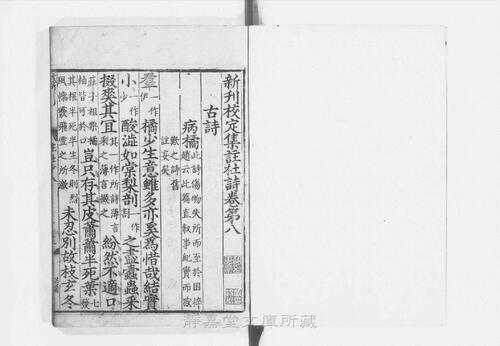 新刊校定集註杜詩卷第八
古詩
病橘 此詩傷物失所而至於困悴 趙云此篇直叙事紀實而
歎之詩舊註妄矣
羣 一作伊 橘少生意雖多亦奚為惜哉結實
小 一作少 酸澁如棠梨剖 一作割 之盡蠹蟲采
掇爽其宜 紛然不適口
豈只存其皮蕭蕭半死葉
未忍別故枝玄冬
靜嘉堂文庫所藏